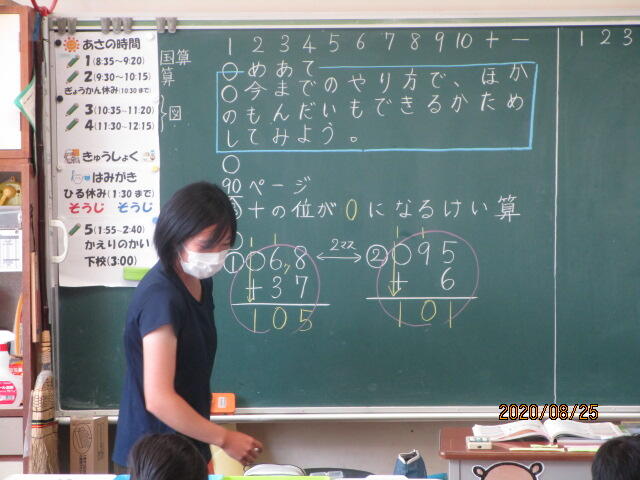 あさの時間
1(8:35~9:20)
2(9:30~10:15)
ぎょうかん休み(10:30まで)
3(10:35~11:20)
4(11:30~12:15)
きゅうしょく
はみがき
ひる休み(1:30まで)
そうじ そうじ
5(1:55~2:40)
かえりのかい
下校(3:00)
国算
算
図
1 2 3 4 5 6 7 8 9 10 + −
めあて
今までのやり方で、ほか
のもんだいもできるかため
してみよう。
90ページ
十の位が0になるけい算
① 068
+37
105
2マス
② 095
+ 6
101
1 2 3
2020/08/25